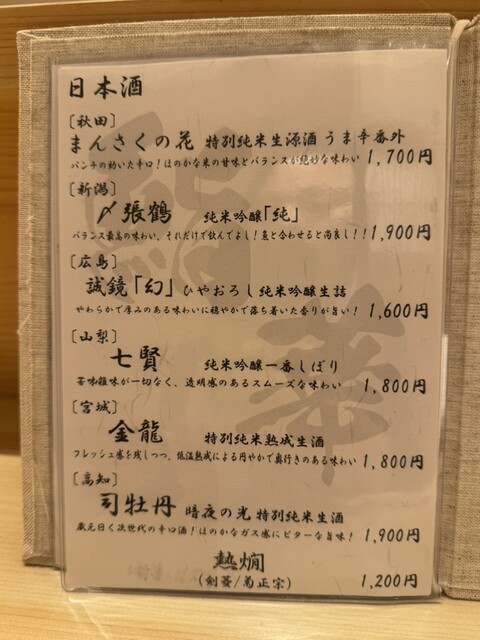 日本酒
［秋田］
まんさくの花 特別純米生源酒 うま辛番外
パンチの効いた辛口！ほのかな米の甘味とバランスが絶妙な味わい 1,700円
［新潟］
〆張鶴 純米吟醸「純」
バランス最高の味わい、それだけで飲んでよし！魚と合わせると尚良し！！1,900円
［広島］
誠鏡「幻」ひやおろし 純米吟醸生詰
やわらかで厚みのある味わいに穏やかで落ち着いた香りが旨い！ 1,600円
［山梨］
七賢 純米吟醸一番しぼり
苦味雑味が一切なく、透明感のあるスムーズな味わい 1,800円
［宮城］
金龍 特別純米熟成生酒
フレッシュ感を残しつつ、低温熟成による円やかで奥行きのある味わい 1,800円
［高知］
司牡丹 暗夜の光 特別純米生酒
蔵元曰く次世代の辛口酒！ほのかなガス感にビターな旨味！ 1,900円
熱燗
（剣菱/菊正宗） 1,200円